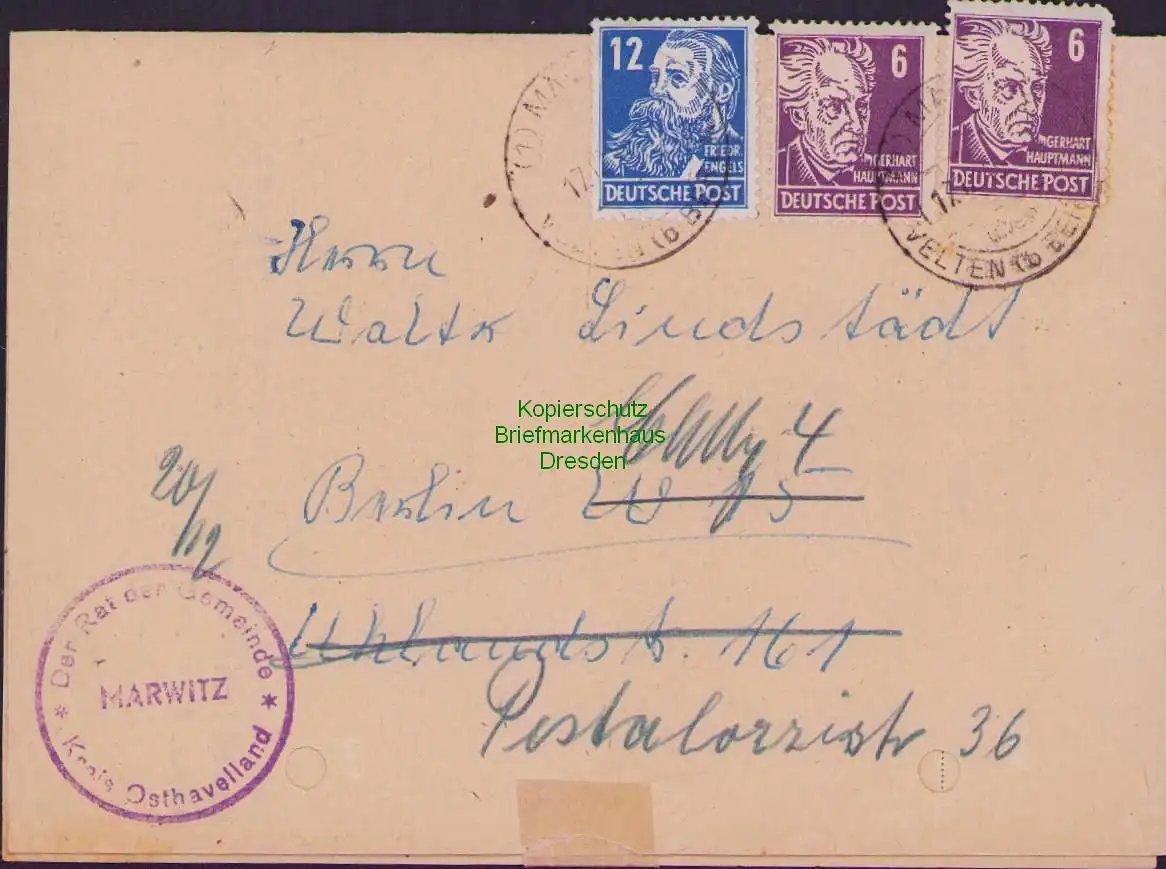 12
FRIEDR.
ENGELS
DEUTSCHE POST
6
GERHART
HAUPTMANN
DEUTSCHE POST
6
GERHART
HAUPTMANN
DEUTSCHE POST
17.
VELTEN (b BER
Herrn
Walter Lindstädt
Kopierschutz
Briefmarkenhaus
Dresden
Berlin W 15
4
20/
12
Uhlandstr. 161
Pestalozzistr 36
Der Rat der Gemeinde
MARWITZ
Kreis Osthavelland